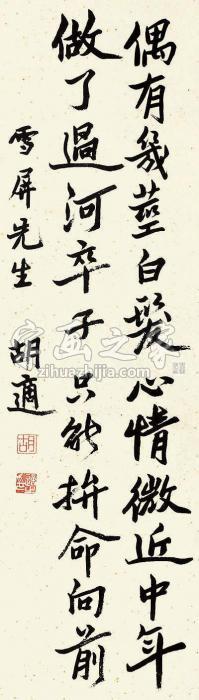 偶有幾莖白髮心情微近中年
做了過河卒子只能拚命向前
雪屏先生
胡適
字画之家
zihuazhijia.com
胡